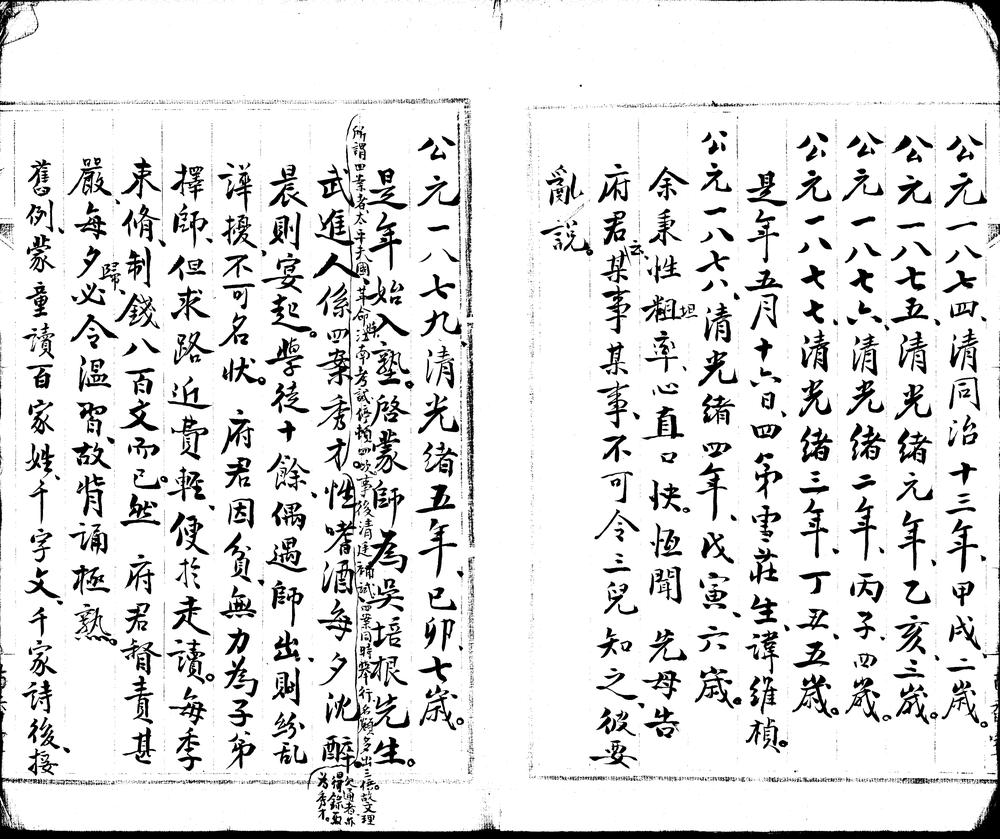 公元一八七四、清同治十三年、甲戌二歲。
公元一八七五、清光緒元年、乙亥、三歲。
公元一八七六、清光緒二年、丙子、四歲。
公元一八七七、清光緒三年、丁丑、五歲。
是年五月十六日、四弟雪莊生、諱維楨。
公元一八七八、清光緒四年、戊寅、六歲。
余秉性粗率、心直口快。恆聞 先母告
坦
府君某事某事、不可令三兒知之、彼要
云、
亂說。
公元一八七九、清光緒五年、己卯、七歲。
是年始入塾。啓蒙師為吳培根先生。
所謂四案者太平天國革命江南考試停頓四次事後清廷補試四案同時舉行名額多出三倍。故文理
欠通者亦
得錄取
為秀才。
武進人係四案秀才、性嗜酒每夕沈醉、
晨則宴起。學徒十餘、偶遇師出、則紛亂
譁擾、不可名狀。府君因貧、無力為子弟
擇師、但求路近費輕、便於走讀。每季
束脩、制錢八百文而已。然 府君督責甚
嚴、每夕歸、必令溫習、故背誦極熟。
舊例、蒙童讀百家姓、千字文、千家詩後、接